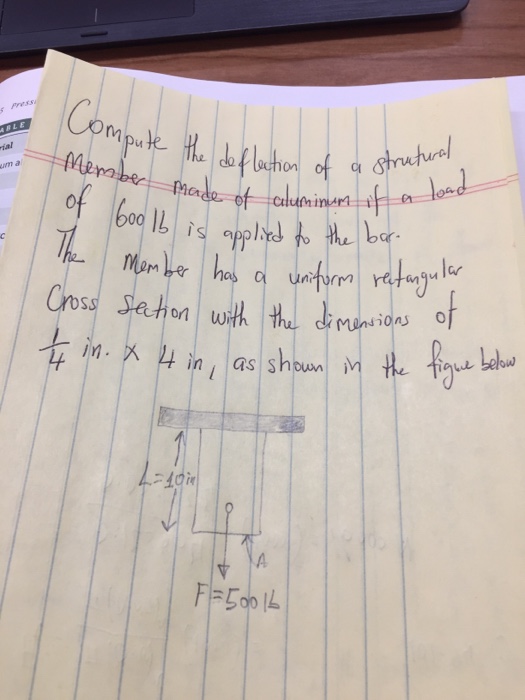 s Press
ABLE
rial
um a
Compute the deflection of a structural
Member made of aluminum if a load
of 600 lb is applied to the bar.
The Member has a uniform rectangular
Cross Section with the dimensions of
1/4 in. x 4 in, as shown in the figure below
L=10in
A
F=500 lb